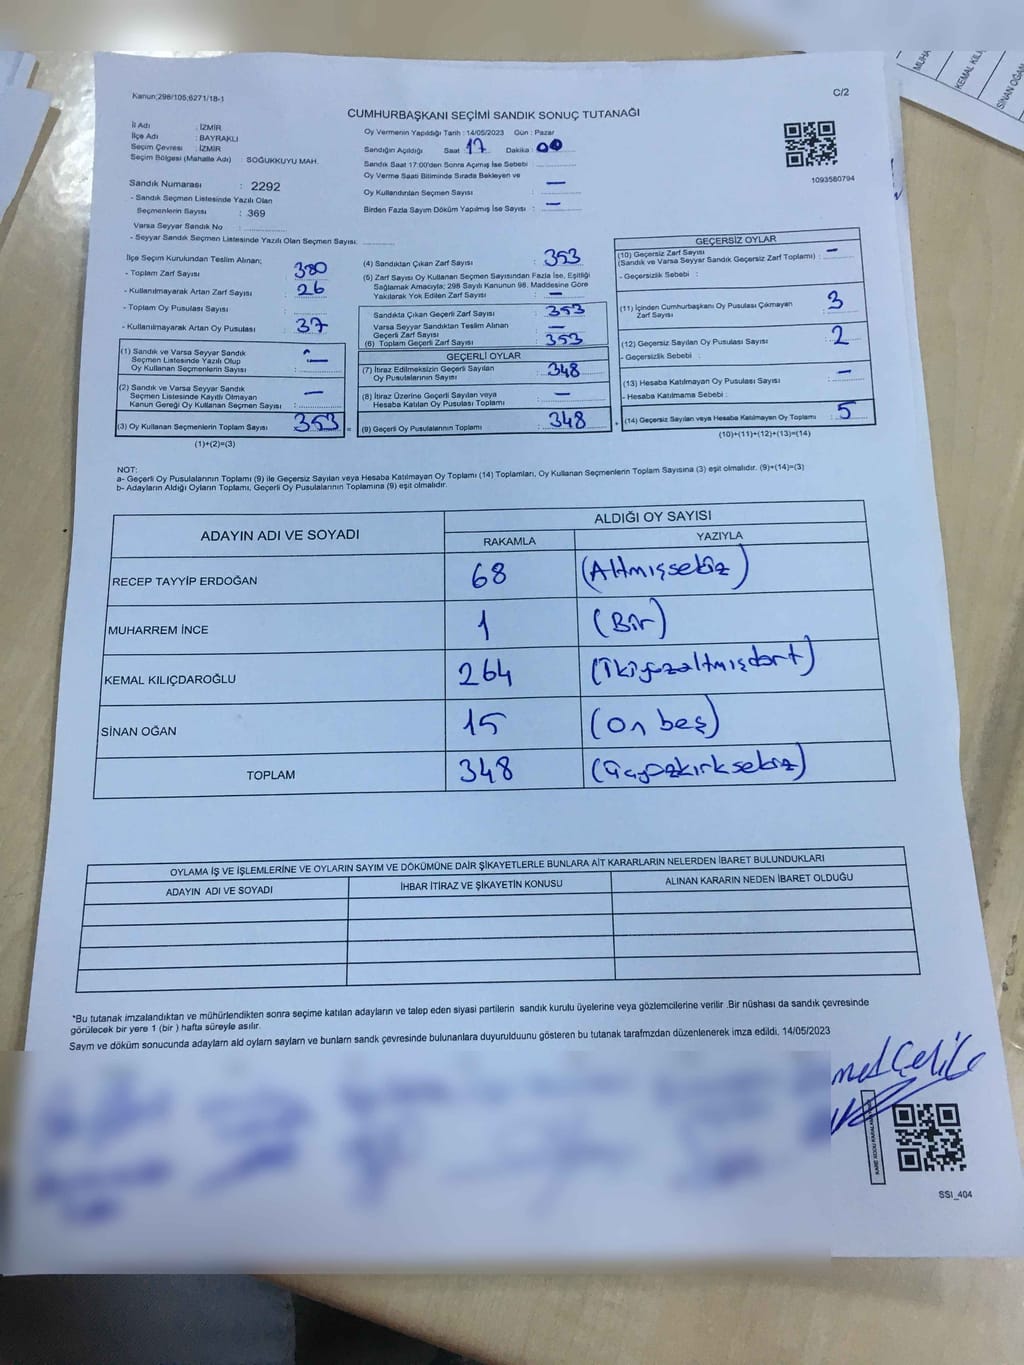 MUHA
KEMAL KILI
SİNAN OĞAN
Kanun;298/105;6271/18-1
C/2
CUMHURBAŞKANI SEÇİMİ SANDIK SONUÇ TUTANAĞI
İl Adı : İZMİR
İlçe Adı : BAYRAKLI
Seçim Çevresi : İZMİR
Seçim Bölgesi (Mahalle Adı) : SOĞUKKUYU MAH.
Sandık Numarası : 2292
- Sandık Seçmen Listesinde Yazılı Olan
Seçmenlerin Sayısı : 369
Varsa Seyyar Sandık No :
- Seyyar Sandık Seçmen Listesinde Yazılı Olan Seçmen Sayısı:
Oy Vermenin Yapıldığı Tarih : 14/05/2023 Gün : Pazar
Sandığın Açıldığı Saat 17 Dakika 00
Sandık Saat 17:00'den Sonra Açımış İse Sebebi :
Oy Verme Saati Bitiminde Sırada Bekleyen ve
Oy Kullandırılan Seçmen Sayısı : —
Birden Fazla Sayım Döküm Yapılmış İse Sayısı : —
1093580794
İlçe Seçim Kurulundan Teslim Alınan;
- Toplam Zarf Sayısı : 380
- Kullanılmayarak Artan Zarf Sayısı : 26
- Toplam Oy Pusulası Sayısı :
- Kullanılmayarak Artan Oy Pusulası : 37
(1) Sandık ve Varsa Seyyar Sandık
Seçmen Listesinde Yazılı Olup
Oy Kullanan Seçmen Sayısı :
(2) Sandık ve Varsa Seyyar Sandık
Seçmen Listesinde Kayıtlı Olmayan
Kanun Gereği Oy Kullanan Seçmen Sayısı : —
(3) Oy Kullanan Seçmenlerin Toplam Sayısı : 353
(1)+(2)=(3)
(4) Sandıktan Çıkan Zarf Sayısı : 353
(5) Zarf Sayısı Oy Kullanan Seçmen Sayısından Fazla İse, Eşitliği
Sağlamak Amacıyla; 298 Sayılı Kanunun 98. Maddesine Göre
Yakılarak Yok Edilen Zarf Sayısı : —
Sandıkta Çıkan Geçerli Zarf Sayısı : 353
Varsa Seyyar Sandıktan Teslim Alınan
Geçerli Zarf Sayısı : —
(6) Toplam Geçerli Zarf Sayısı : 353
GEÇERLİ OYLAR
(7) İtiraz Edilmeksizin Geçerli Sayılan
Oy Pusulalarının Sayısı : 348
(8) İtiraz Üzerine Geçerli Sayılan veya
Hesaba Katılan Oy Pusulası Toplamı : —
= (9) Geçerli Oy Pusulalarının Toplamı : 348
GEÇERSİZ OYLAR
(10) Geçersiz Zarf Sayısı
(Sandık ve Varsa Seyyar Sandık Geçersiz Zarf Toplamı) : —
- Geçersizlik Sebebi :
(11) İçinden Cumhurbaşkanı Oy Pusulası Çıkmayan
Zarf Sayısı : 3
(12) Geçersiz Sayılan Oy Pusulası Sayısı : 2
- Geçersizlik Sebebi :
(13) Hesaba Katılmayan Oy Pusulası Sayısı : —
- Hesaba Katılmama Sebebi :
+ (14) Geçersiz Sayılan veya Hesaba Katılmayan Oy Toplamı : 5
(10)+(11)+(12)+(13)=(14)
NOT:
a- Geçerli Oy Pusulalarının Toplamı (9) ile Geçersiz Sayılan veya Hesaba Katılmayan Oy Toplamı (14) Toplamları, Oy Kullanan Seçmenlerin Toplam Sayısına (3) eşit olmalıdır. (9)+(14)=(3)
b- Adayların Aldığı Oyların Toplamı, Geçerli Oy Pusulalarının Toplamına (9) eşit olmalıdır.
ADAYIN ADI VE SOYADI
ALDIĞI OY SAYISI
RAKAMLA YAZIYLA
RECEP TAYYİP ERDOĞAN 68 (Altmışsekiz)
MUHARREM İNCE 1 (Bir)
KEMAL KILIÇDAROĞLU 264 (İkiyüzaltmışdört)
SİNAN OĞAN 15 (On beş)
TOPLAM 348 (Üçyüzkırksekiz)
OYLAMA İŞ VE İŞLEMLERİNE VE OYLARIN SAYIM VE DÖKÜMÜNE DAİR ŞİKAYETLERLE BUNLARA AİT KARARLARIN NELERDEN İBARET BULUNDUKLARI
ADAYIN ADI VE SOYADI İHBAR İTİRAZ VE ŞİKAYETİN KONUSU ALINAN KARARIN NEDEN İBARET OLDUĞU
*Bu tutanak imzalandıktan ve mühürlendikten sonra seçime katılan adayların ve talep eden siyasi partilerin sandık kurulu üyelerine veya gözlemcilerine verilir .Bir nüshası da sandık çevresinde
görülecek bir yere 1 (bir ) hafta süreyle asılır.
Saym ve döküm sonucunda adaylarn ald oylarn saylarn ve bunlarn sandk çevresinde bulunanlara duyurulduunu gösteren bu tutanak tarafmzdan düzenlenerek imza edildi. 14/05/2023
SSI_404